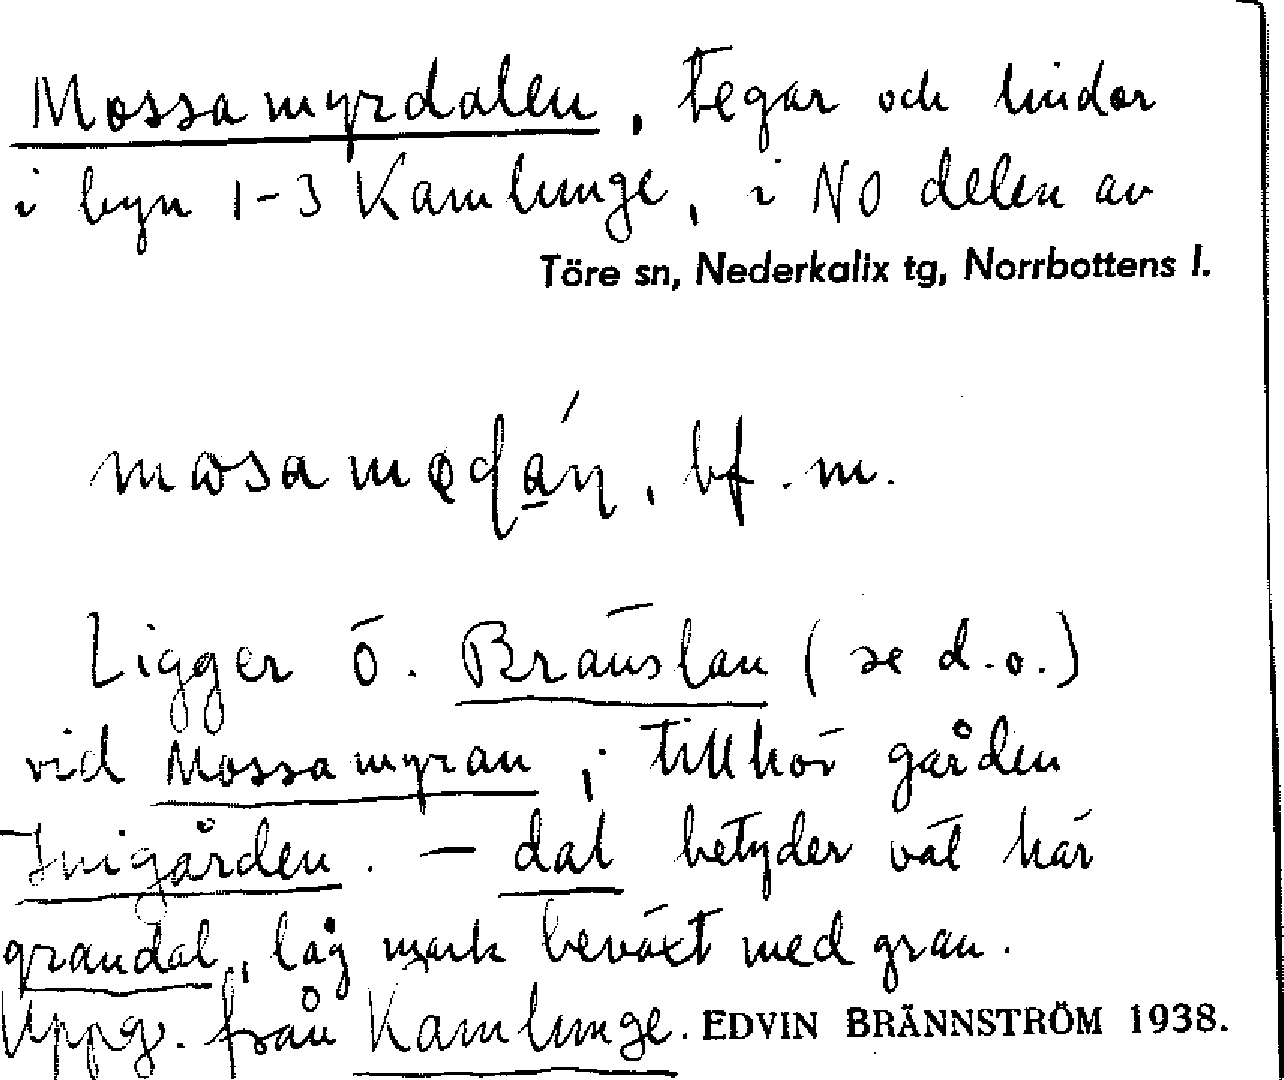 Mossamyrdalen, tegar och lindor
i byn 1-3 Kamlunge, i NO delen av
Töre sn, Nederkalix tg, Norrbottens l.
bf. m.
Ligger ö. Bränslan (se d.o.)
vid Mossamyran; tillhör gården
Inigården. — dal betyder väl här
grandal, låg mark beväxt med gran.
Uppg. från Kamlunge. EDVIN BRÄNNSTRÖM 1938.